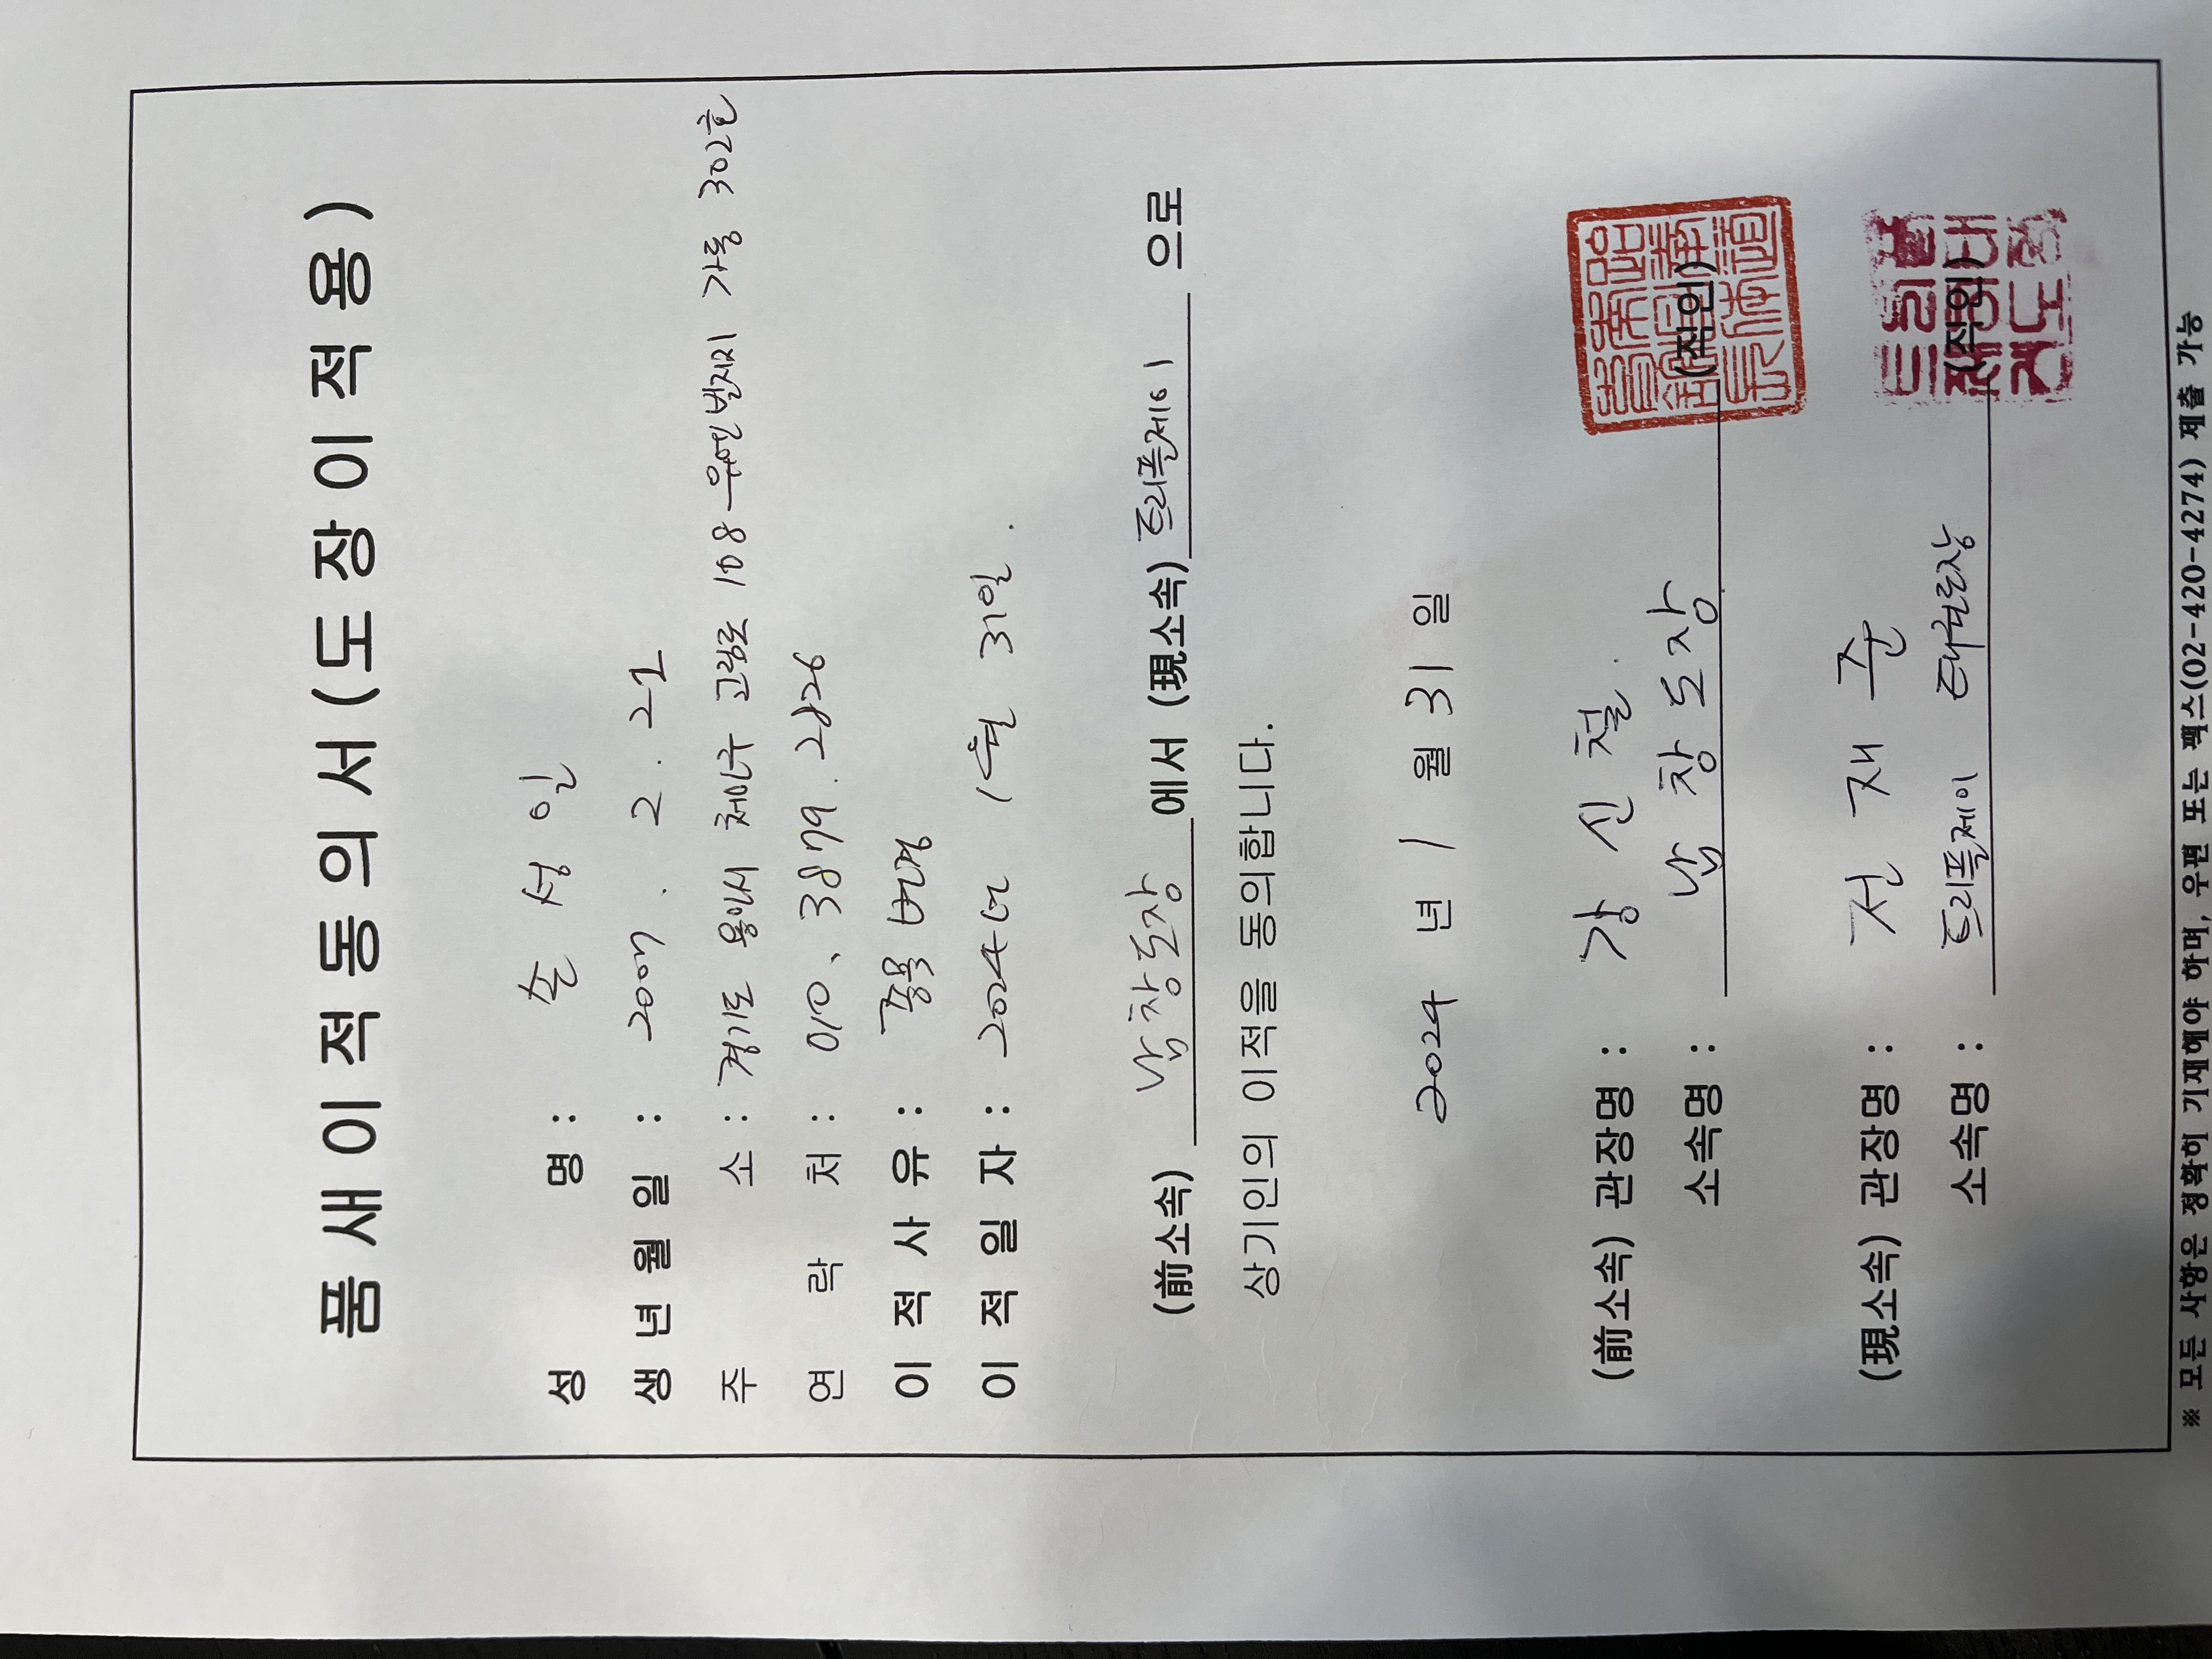 품 새 이 적 동 의 서 ( 도 장 이 적 용 )
성 명 : 손 성 인
생 년 월 일 : 2007. 2. 21
주 소 : 경기도 용인시 처인구 고림로 108 유인빌라 가동 302호
연 락 처 : 010. 3879. 2826
이 적 사 유 : 종목 변경
이 적 일 자 : 2024년 1월 31일.
(前소속) 남창도장 에서 (現소속) 트리플제이 으로
상기인의 이적을 동의합니다.
2024 년 1 월 31 일
(前소속) 관장명 : 강 신 철
소속명 : 남 창 도 장 (직인)
(現소속) 관장명 : 전 재 준
소속명 : 트리플제이 태권도장 (직인)
트리플
제이태
권도장
※ 모든 사항은 정확히 기재해야 하며, 우편 또는 팩스(02-420-4274) 제출 가능